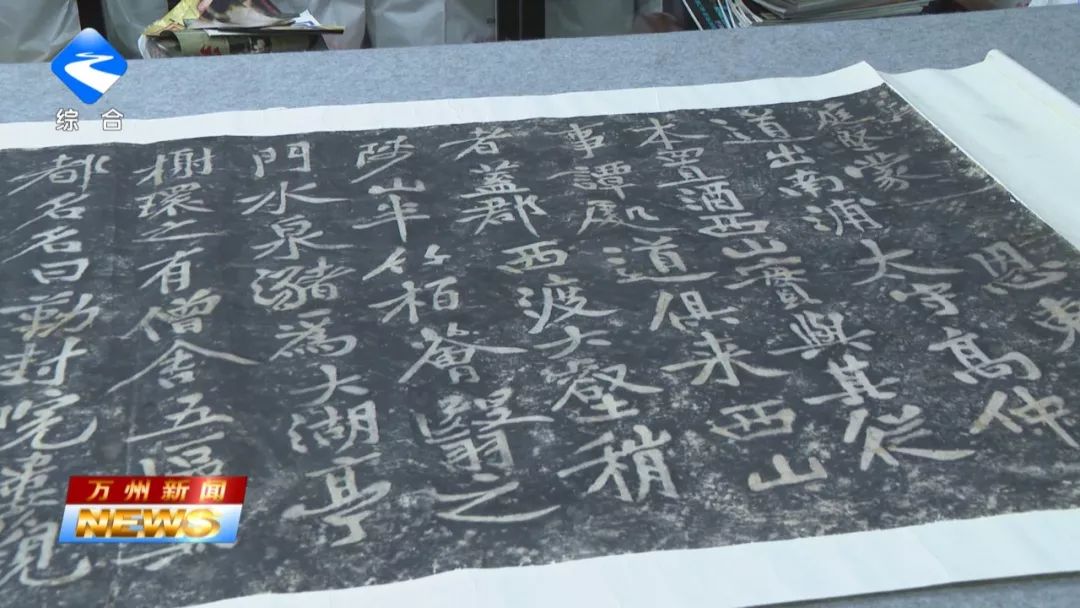 综合
庭堅蒙恩東
道出南浦大守高仲
本置酒西山實與其從
事譚處道俱来西山
者蓋郡西渡大壑稍
陟山半竹栢薈翳之
門水泉瀦爲大湖亭
榭環之有僧舍五區其
都名名曰勒封院
万州新闻
NEWS